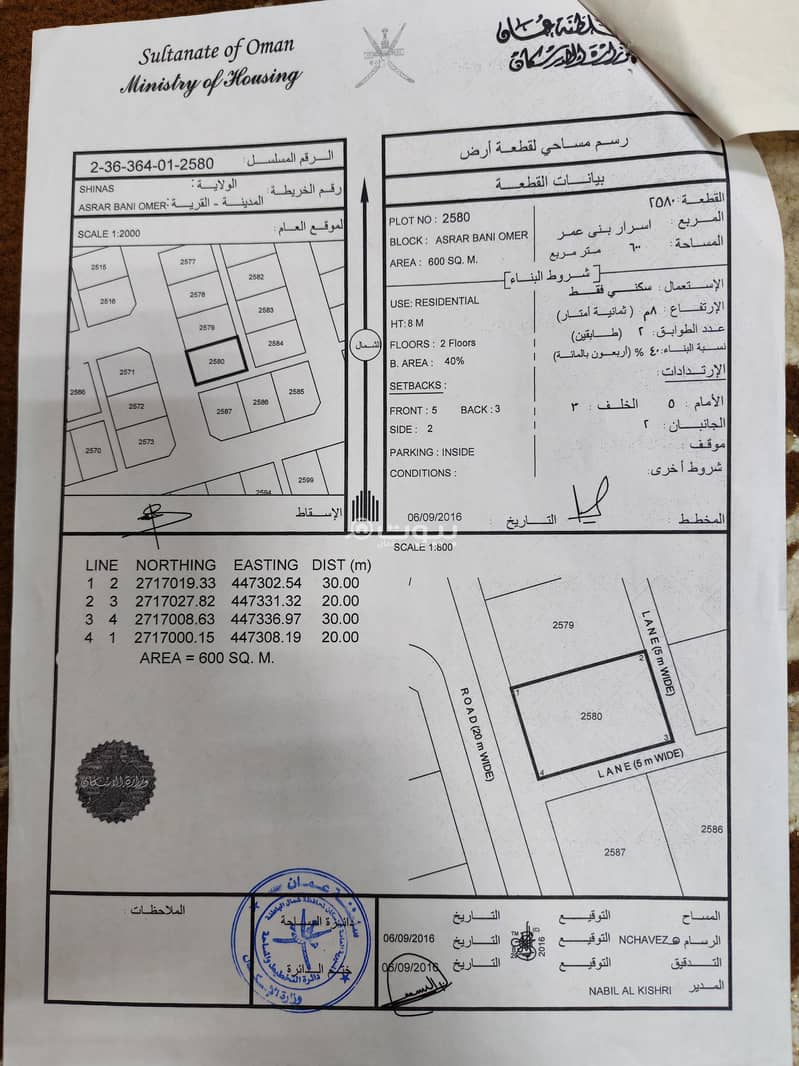 Sultanate of Oman
Ministry of Housing
سلطنة عمان
وزارة الإسكان
2-36-364-01-2580 الرقم المسلسل:
SHINAS الولاية: رقم الخريطة:
ASRAR BANI OMER المدينة - القرية:
SCALE 1:2000 الموقع العام:
2515
2516
2577
2578
2579
2580
2582
2583
2584
2571
2572
2573
2586
2570
2587
2586
2585
2594
2599
الإسقاط
الشمال
رسم مساحي لقطعة أرض
بيانات القطعة
PLOT NO : 2580
القطعة: ٢٥٨٠
BLOCK : ASRAR BANI OMER
المربع : اسرار بنى عمر
AREA : 600 SQ. M.
المساحة: ٦٠٠ متر مربع
[شروط البناء]
USE: RESIDENTIAL
الإستعمال: سكني فقط
HT: 8 M
الإرتفاع : ٨م (ثمانية أمتار)
FLOORS : 2 Floors
عدد الطوابق: ٢ (طابقين)
B. AREA : 40%
نسبة البناء: ٤٠ % (أربعون بالمائة)
SETBACKS :
الإرتدادات:
FRONT : 5 BACK : 3
الأمام : ٥ الخلف : ٣
SIDE : 2
الجانبان : ٢
PARKING : INSIDE
موقف:
CONDITIONS :
شروط أخرى:
06/09/2016 التاريخ : المخطط :
بيوت
SCALE 1:800
LINE NORTHING EASTING DIST (m)
1 2 2717019.33 447302.54 30.00
2 3 2717027.82 447331.32 20.00
3 4 2717008.63 447336.97 30.00
4 1 2717000.15 447308.19 20.00
AREA = 600 SQ. M.
2579
LANE (5 m WIDE)
1
2
2580
3
4
ROAD (20 m WIDE)
LANE (5 m WIDE)
2586
2587
وزارة الاسكان
الملاحظات :
دائرة المساحة
ختم الدائرة
سلطنة عمان
دائرة التخطيط والمساحة
وزارة الإسكان
المساح التوقيع التاريخ
الرسام NCHAVEZ التوقيع التاريخ 06/09/2016
التدقيق التوقيع التاريخ 06/09/2016
المدير NABIL AL KISHRI
2016